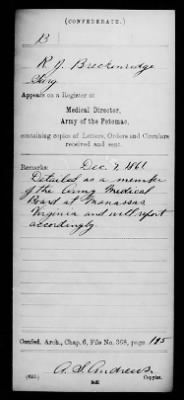 (CONFEDERATE.)
B
R J Breckenridge
Surg
Appears on a Register of
Medical Director,
Army of the Potomac,
containing copies of Letters, Orders and Circulars
received and sent.
Remarks: Dec. 7, 1861
Detailed as a member
of the Army Medical
Board at Manassas
Virginia and will report
accordingly.
Confed. Arch., Chap. 6, File No. 368, page 195
A. S. Andrews
Copyist.